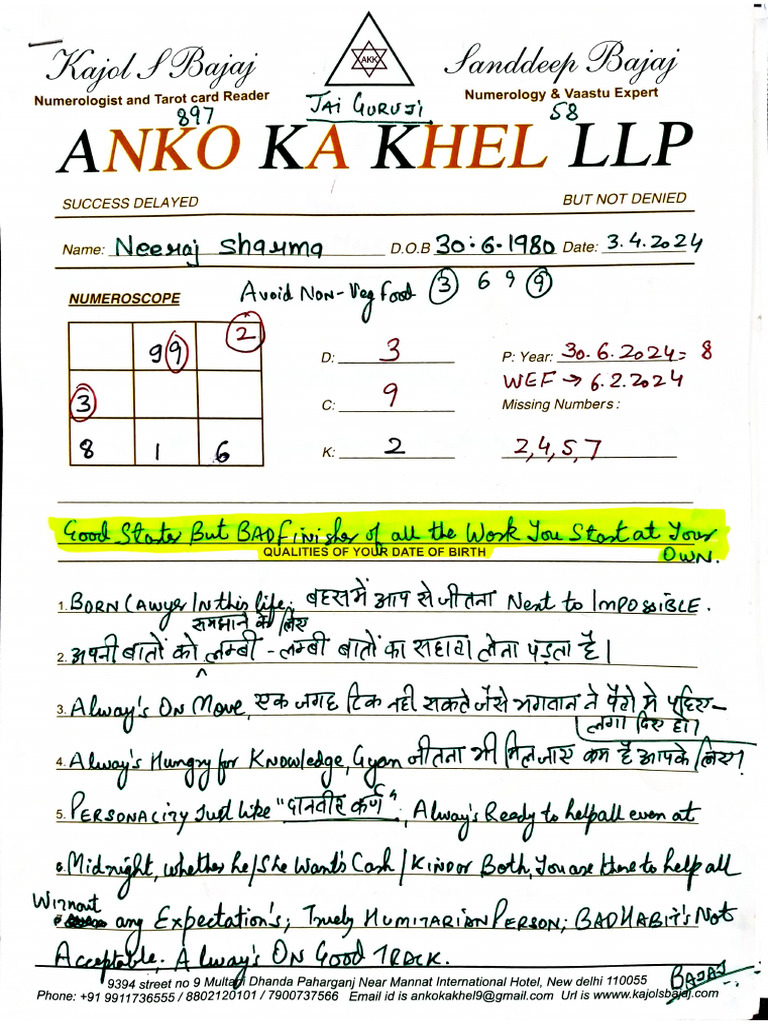 AKK
Kajol S Bajaj
Sanddeep Bajaj
Numerologist and Tarot card Reader
JAI GURUJI
Numerology & Vaastu Expert
897
58
ANKO KA KHEL LLP
SUCCESS DELAYED
BUT NOT DENIED
Name: Neeraj Sharma D.O.B 30:6-1980 Date: 3.4.2024
NUMEROSCOPE
Avoid Non-Veg Food 3 6 9 9
9 9 2
3
8 1 6
D: 3
C: 9
K: 2
P: Year: 30.6.2024= 8
WEF → 6.2.2024
Missing Numbers:
2,4,5,7
Good Starter But BAD Finisher of all the Work You Start at Your
OWN.
QUALITIES OF YOUR DATE OF BIRTH
1. BORN LAWyer In this life; बहस में आप से जीतना Next to IMPOSSIBLE.
समझाने के लिए
2. अपनी बातों को लम्बी - लम्बी बातों का सहारा लेना पड़ता है।
3. Alway's On Move, एक जगह टिक नही सकते जैसे भगवान ने पैरो मे पहिए-
लगा दिए हो।
4. Alway's Hungry for Knowledge, Gyan जीतना भी मिल जाए कम है आपके लिए।
5. PERSONALITY Just Like "दानवीर कर्ण", Alway's Ready to help all even at
6. Midnight, whether he/She Want's Cash/KIND or Both, You are there to help all
Without any Expectation's; Truely HUMITARIAN PERSON; BAD HABIT'S Not
Acceptable. Alway's ON Good TRACK.
BAJAJ
9394 street no 9 Multani Dhanda Paharganj Near Mannat International Hotel, New delhi 110055
Phone: +91 9911736555 / 8802120101 / 7900737566 Email id is ankokakhel9@gmail.com Url is www.kajolsbajaj.com